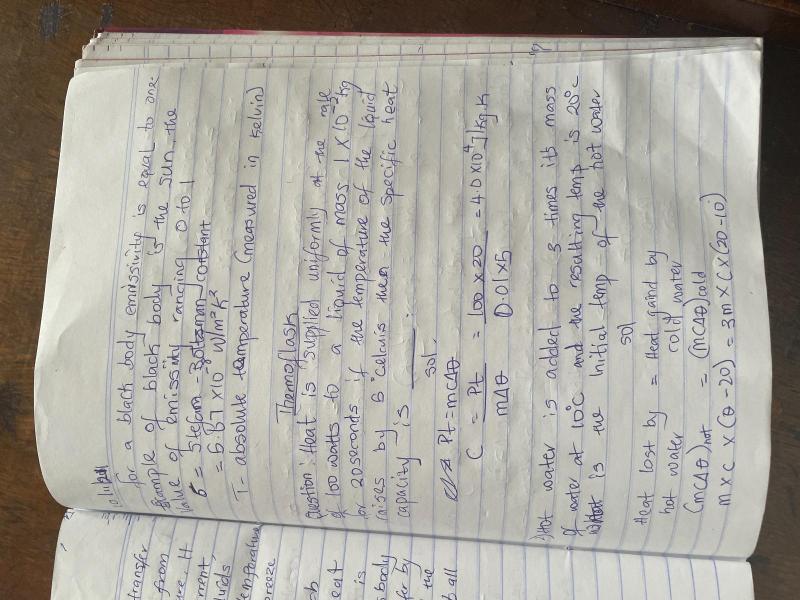 for a black body emissivity is equal to one.
Example of black body is the sun, the
Value of emissity ranging 0 to 1
σ = Stefam - Boltzman constant
= 5.67 X10⁻⁸ W/m²K²
T - absolute temperature (measured in kelvin)
Thermoflask
Question: Heat is supplied uniformly at the rate
of 100 watts to a liquid of mass 1 X 10⁻² kg
for 20 seconds if the temperature of the liquid
raises by 5°Celcuis then the specific heat
capacity is
sol.
Pt = mcΔθ
C = Pt = 100 x 20 = 4.0 X10⁴ J/kg.K
mΔθ 0.01 x 5
Hot water is added to 3 times its mass
of water at 10°C and the resulting temp is 20°C
What is the Initial temp of the hot water
sol
Heat lost by = Heat gaind by
hot water cold water
(mcΔθ)hot = (mcΔθ)cold
m x c x (θ - 20) = 3m x c x (20 - 10)
transfer
from
ure. It
ment,
luids,
temperature
breeze
eat
is
body
fer by
the
all